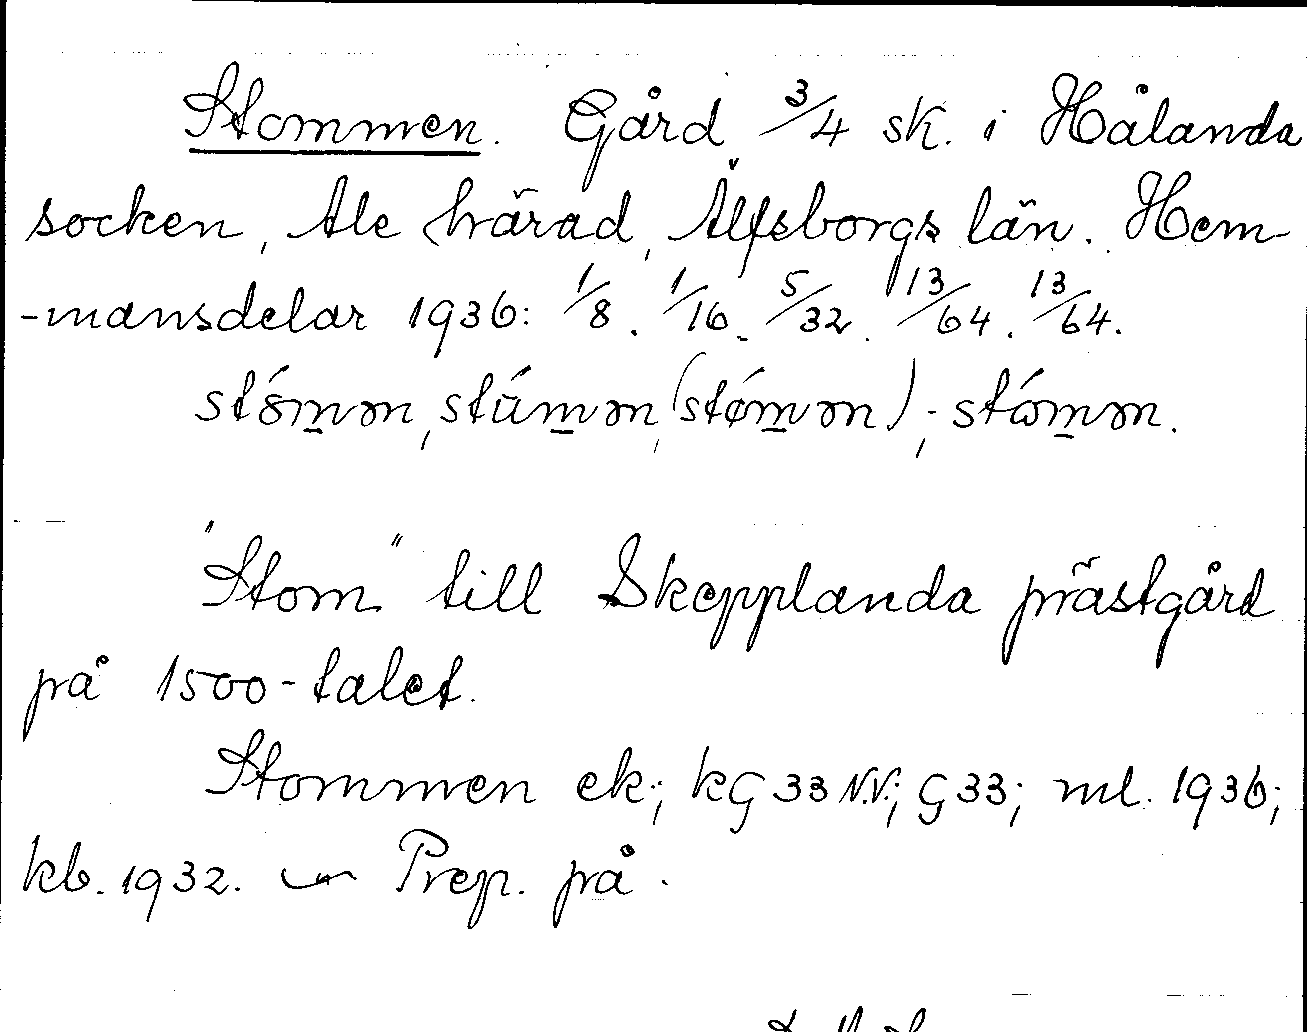 Stommen. Gård 3/4 sk. i Hålanda
socken, Ale härad, Älfsborgs län. Hem-
-mansdelar 1936: 1/8. 1/16. 5/32. 13/64. 13/64.
stómmən, stúmmən, (stǿmmən); stómmən.
"Stom" till Skepplanda prästgård
på 1500-talet.
Stommen ek.; kG 33 N.V.; G 33; ml. 1936;
kb. 1932. ~ Prep. på.